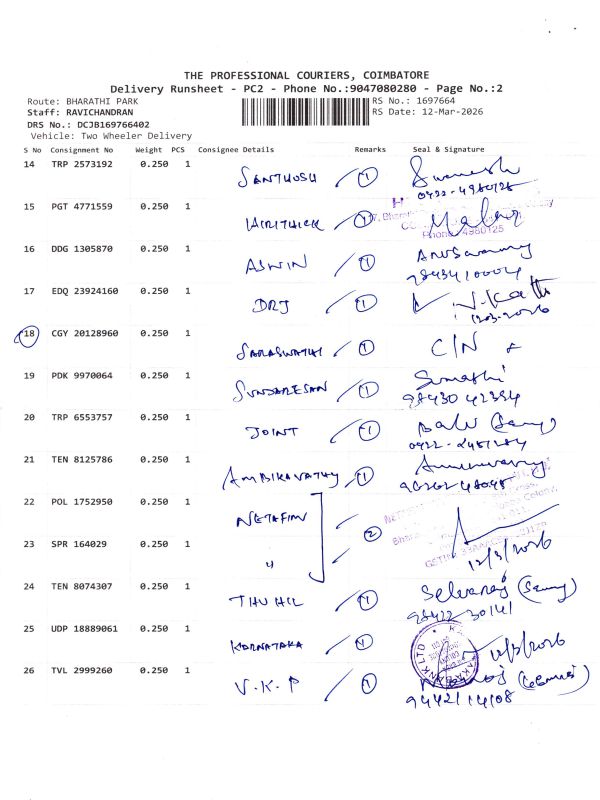 THE PROFESSIONAL COURIERS, COIMBATORE
Delivery Runsheet - PC2 - Phone No.:9047080280 - Page No.:2
Route: BHARATHI PARK RS No.: 1697664
Staff: RAVICHANDRAN RS Date: 12-Mar-2026
DRS No.: DCJB169766402
Vehicle: Two Wheeler Delivery
S No Consignment No Weight PCS Consignee Details Remarks Seal & Signature
14 TRP 2573192 0.250 1
SANTHOSH 1
0422-4980125
15 PGT 4771559 0.250 1
HIRITHICK 1
Phone 4980125
16 DDG 1305870 0.250 1
ASWIN 1
9843410004
17 EDQ 23924160 0.250 1
DRJ 1
12-03-2026
18 CGY 20128960 0.250 1
SARASWATHI 1 C/N
19 PDK 9970064 0.250 1
SUNDARESAN 1 Sumathi
98430 42394
20 TRP 6553757 0.250 1
JOINT 1
21 TEN 8125786 0.250 1
AMBIKAVATHY 1
22 POL 1752950 0.250 1
NETAFIM 2
23 SPR 164029 0.250 1
" 12/3/2026
24 TEN 8074307 0.250 1
THUHIL 1 Selvaraj
98422-30141
25 UDP 18889061 0.250 1
KARNATAKA 1 12/3/2026
26 TVL 2999260 0.250 1
V.K.P 1
9442114108